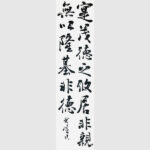 寔茂德之攸居非親
無以隆基非德